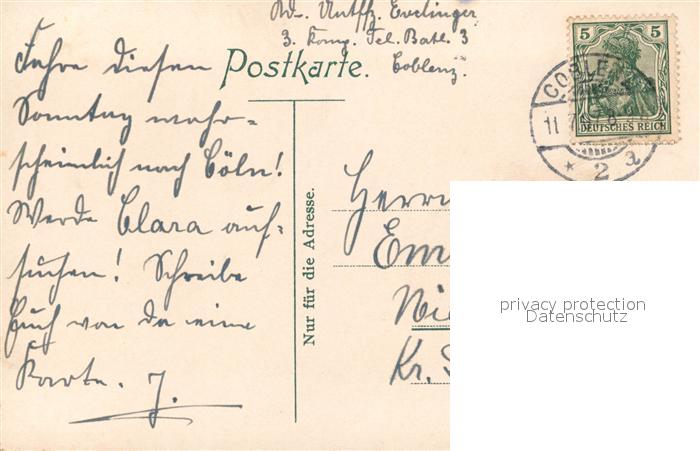 Abs. Untffz. Evelinger
3. Komp. Tel. Batl. 3
Coblenz.
Postkarte.
Fahre diesen
Sonntag wahr-
scheinlich nach Cöln!
Werde Clara auf-
suchen! Schreibe
Euch von da eine
Karte. J.
Nur für die Adresse.
Herrn
Em
Nie
Kr. S
5 5
DEUTSCHES REICH
COBLENZ
11.7.
* 2 a
privacy protection
Datenschutz